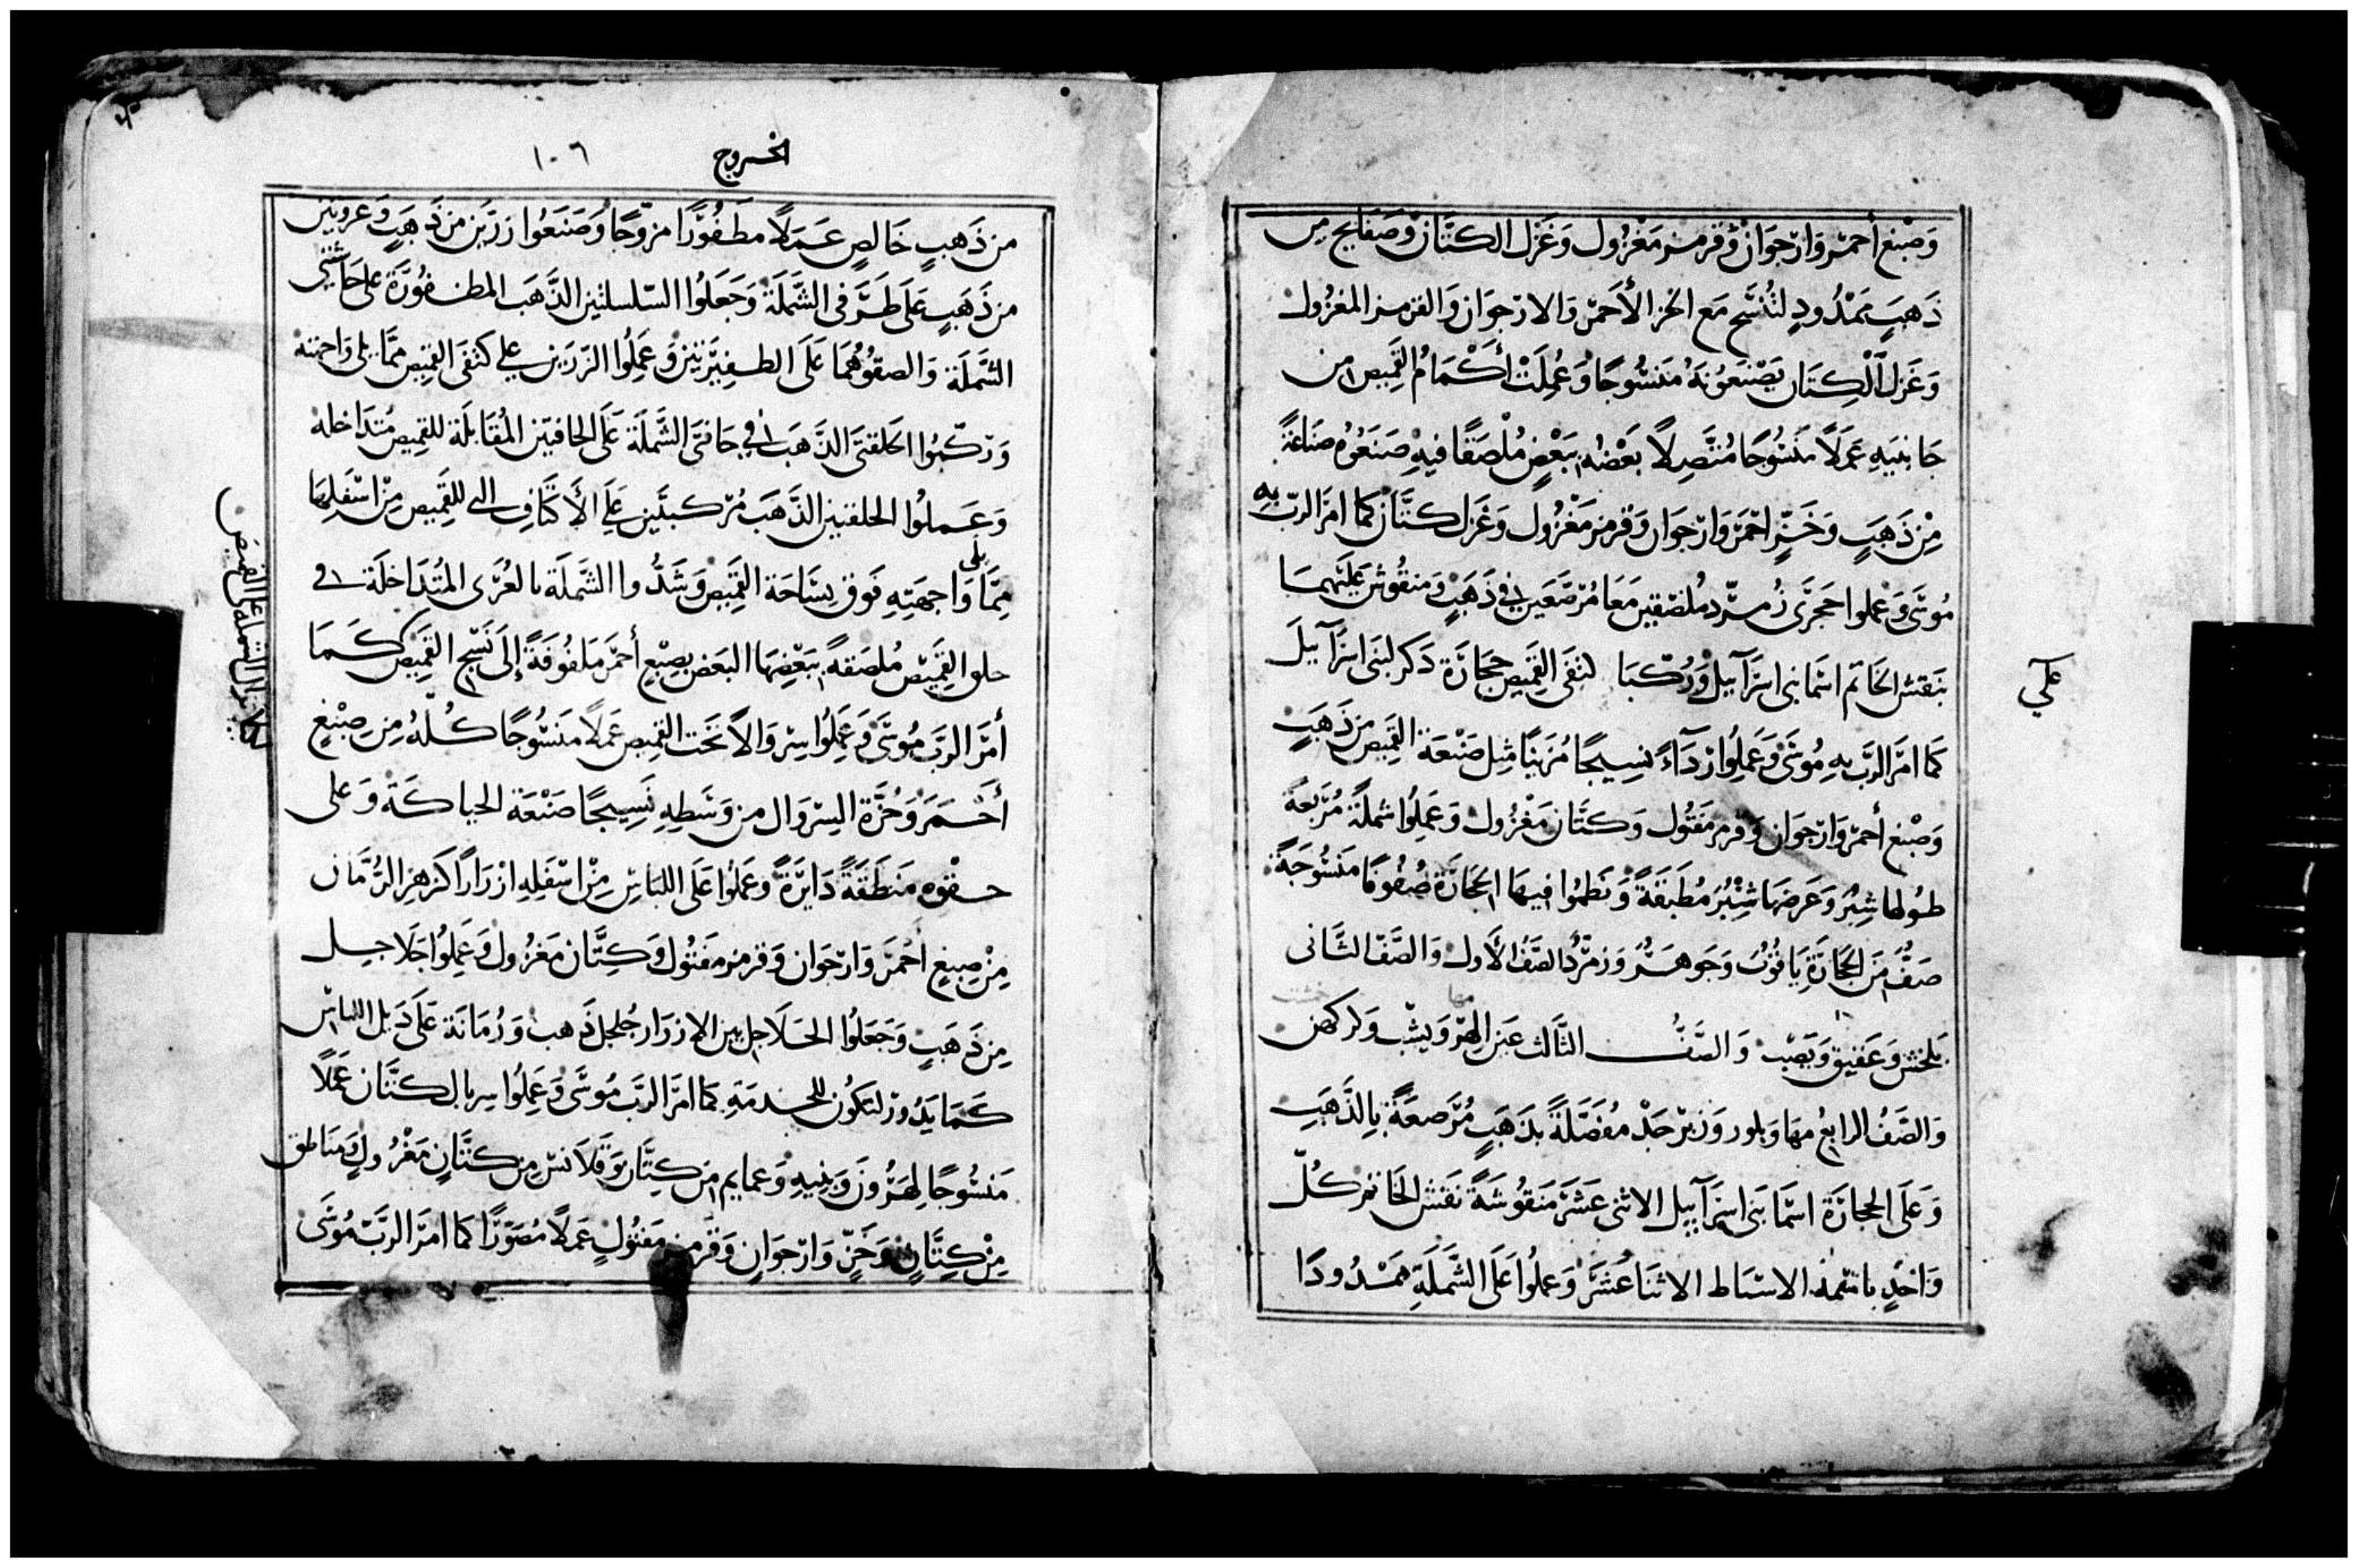 وَصِبْغ أحمر وَارْجوَان وقرمز مَغْزُول وَغَزل الكتَّان وصَفايح من
ذَهَبٍ ممْدُودٍ لتُنسَج مَع الخز الأَحمَر وَالارجوَان وَالقرمز المغزُول
وَغَزل الْكِتَان يَصْنعوُنَهُ مَنسُوجًا وَعُمِلَتْ أكْمَامُ القَمِيص من
جَانِبَيهِ عَمَلاً مَنسُوجًا مُتَّصِلاً بَعْضهُ ببَعْضٍ مُلْصَقًا فيهِ صَنَعُوُه صنَاعَةً
مِنْ ذَهَبٍ وَخَزٍّ احْمَرَ وَارْجوَان وَقرمز مَغْزُول وَغَزل كتَّان كمَا امَرَ الرّب بِهِ
مُوسَى وَعملوا حَجَرَى زُمرّد مُلصَقين مَعَا مُرصَّعَين في ذَهَبٍ وَمنقُوش عَلَيْهمَا
بنَقش الخَاتم اسْمَا بنى اسرَآييل وَرُكّبَا لتفَى القَمِيص حجَارَة ذكر لبنَى اسرَآييلَ
كمَا امَرَ الرَّب بهِ مُوسَى وَعَمِلُوا رِدَآءً نسِيجًا مُزَيَنًا مثِل صَنْعَة القَمِيص من ذَهَبٍ
وَصِبْغ أحمر وَارْجوَان وَقرمز مَفتُول وَكتَّان مَغْزُول وَعَمِلُوا شملَةً مُرَّبعَةً
طولها شِبْر وَعَرضهَا شِبْر مُطَبَقَةً وَنَظمُوا فيهَا الحجَارَة صُفُوفًا مَنْسُوجَةً
صَفّ منَ الحجَارَةِ يَاقُوْت وَجَوهر وَزمرّد الصَّفُ الأَول وَالصَّف الثَّانى
بلخش وَعَقيق وَيَصْب وَالصَّفُّ الثَّالث عَين الهِرّ وَيشب وَكركهن
وَالصَّفُ الرابعُ مهَا وَبلور وَزبَرْجَدْ مفَصَّلَةً بذَهَبٍ مُرَّصعَةً بِالذَّهَبِ
وَعَلَى الحجارَة اسْمَا بَنى اسرَآييل الاثنى عَشَرَ مَنقُوشَةً نَقش الخَاتم كُلّ
وَاحْدٍ باسْمه الاسْبَاط الاثنَا عَشَرَ وَعملُوا عَلَى الشَّملَةِ ممْدُودًا
علي
الخروج ١٠٦
من ذَهبٍ خَالصٍ عَمَلاً مظَفُوُرًا مزوَّجًا وَصَنَعُوا زرَّين من ذَهَبٍ وَعروتين
من ذَهَبٍ عَلَى طَرَفى الشَّملَة وَجَعلوُا السّلسلتين الذَّهَب المظفوُرَة على حَاشيتى
الشَّملَة وَالصقُوُهُمَا عَلَى الظفيرَتين وَعَمِلُوا الزرَين علي كتفَى القميص ممَّا يلى وَاجهته
وَركّبُوا الحَلقتَى الذَّهَب في حَافتَى الشَّملَة عَلَى الحافتين المُقَابلَة للقميص مُتدَاخله
وَعَملوُا الحلقتين الذَّهَب مُرّكبتَين عَلَى الأَكتَافِ الى للقَمِيص مِنْ اسْفَلهَا
مِمَّا يلى وَاجهَتِهِ فَوق نِسَاجَة القَمِيص وَشَدُّوا الشَّملَة بالعُرَى المُتدَاخلَة في
حلو القَمِيْص مُلصَقةً ببَعْضِهَا البَعض بصِبْغٍ أحمَر مَلفُوفَةً إلَى نَسْج القَمِيص كَمَا
أمَرَ الرَّب مُوسَى وَعَمِلُوا سِرْوَالاً تحَت القَمِيص عَمَلاً مَنسُوجًا كُلّهُ مِن صِبْغٍ
أحْمَرَ وَحُزَّة السِرْوَال من وَسَطِهِ نَسِيجًا صَنْعَة الحياكَة وَعلى
حقْوه منطَقَةً دَايرَةً وعَملوُا عَلَى اللبَاسِ مِنْ اسْفَلِهِ ازرَارًا كزهِر الرُّمَّان
مِنْ صِبغٍ احْمَرَ وَارْجوَان وَقرمز مفتُول وَكِتَّان مَغزُول وَعَمِلُوا جَلاَجل
مِن ذَهَبٍ وَجَعَلُوا الجَلاَجل بين الازرَار جُلجل ذَهب وَرُمَانَة عَلَى ذَيل اللباس
كَمَا يَدُور لتكوُن للخدمَةِ كمَا امَرَ الرَّب مُوسَى وَعَمِلُوا سربال كتَّان عَمَلاً
مَنسُوجًا لهَرُونَ وَبَنِيهِ وَعمايم من كِتَّان وَقَلاَنس مِن كتَّانٍ مَغْزُولٍ وَمنَاطق
مِنْ كِتَّانٍ وَخَزّ وَارْجوَانٍ وَقرمز مَفتُولٍ عَمَلاً مُصَوَرًّا كمَا امَرَ الرَّبّ مُوسَى